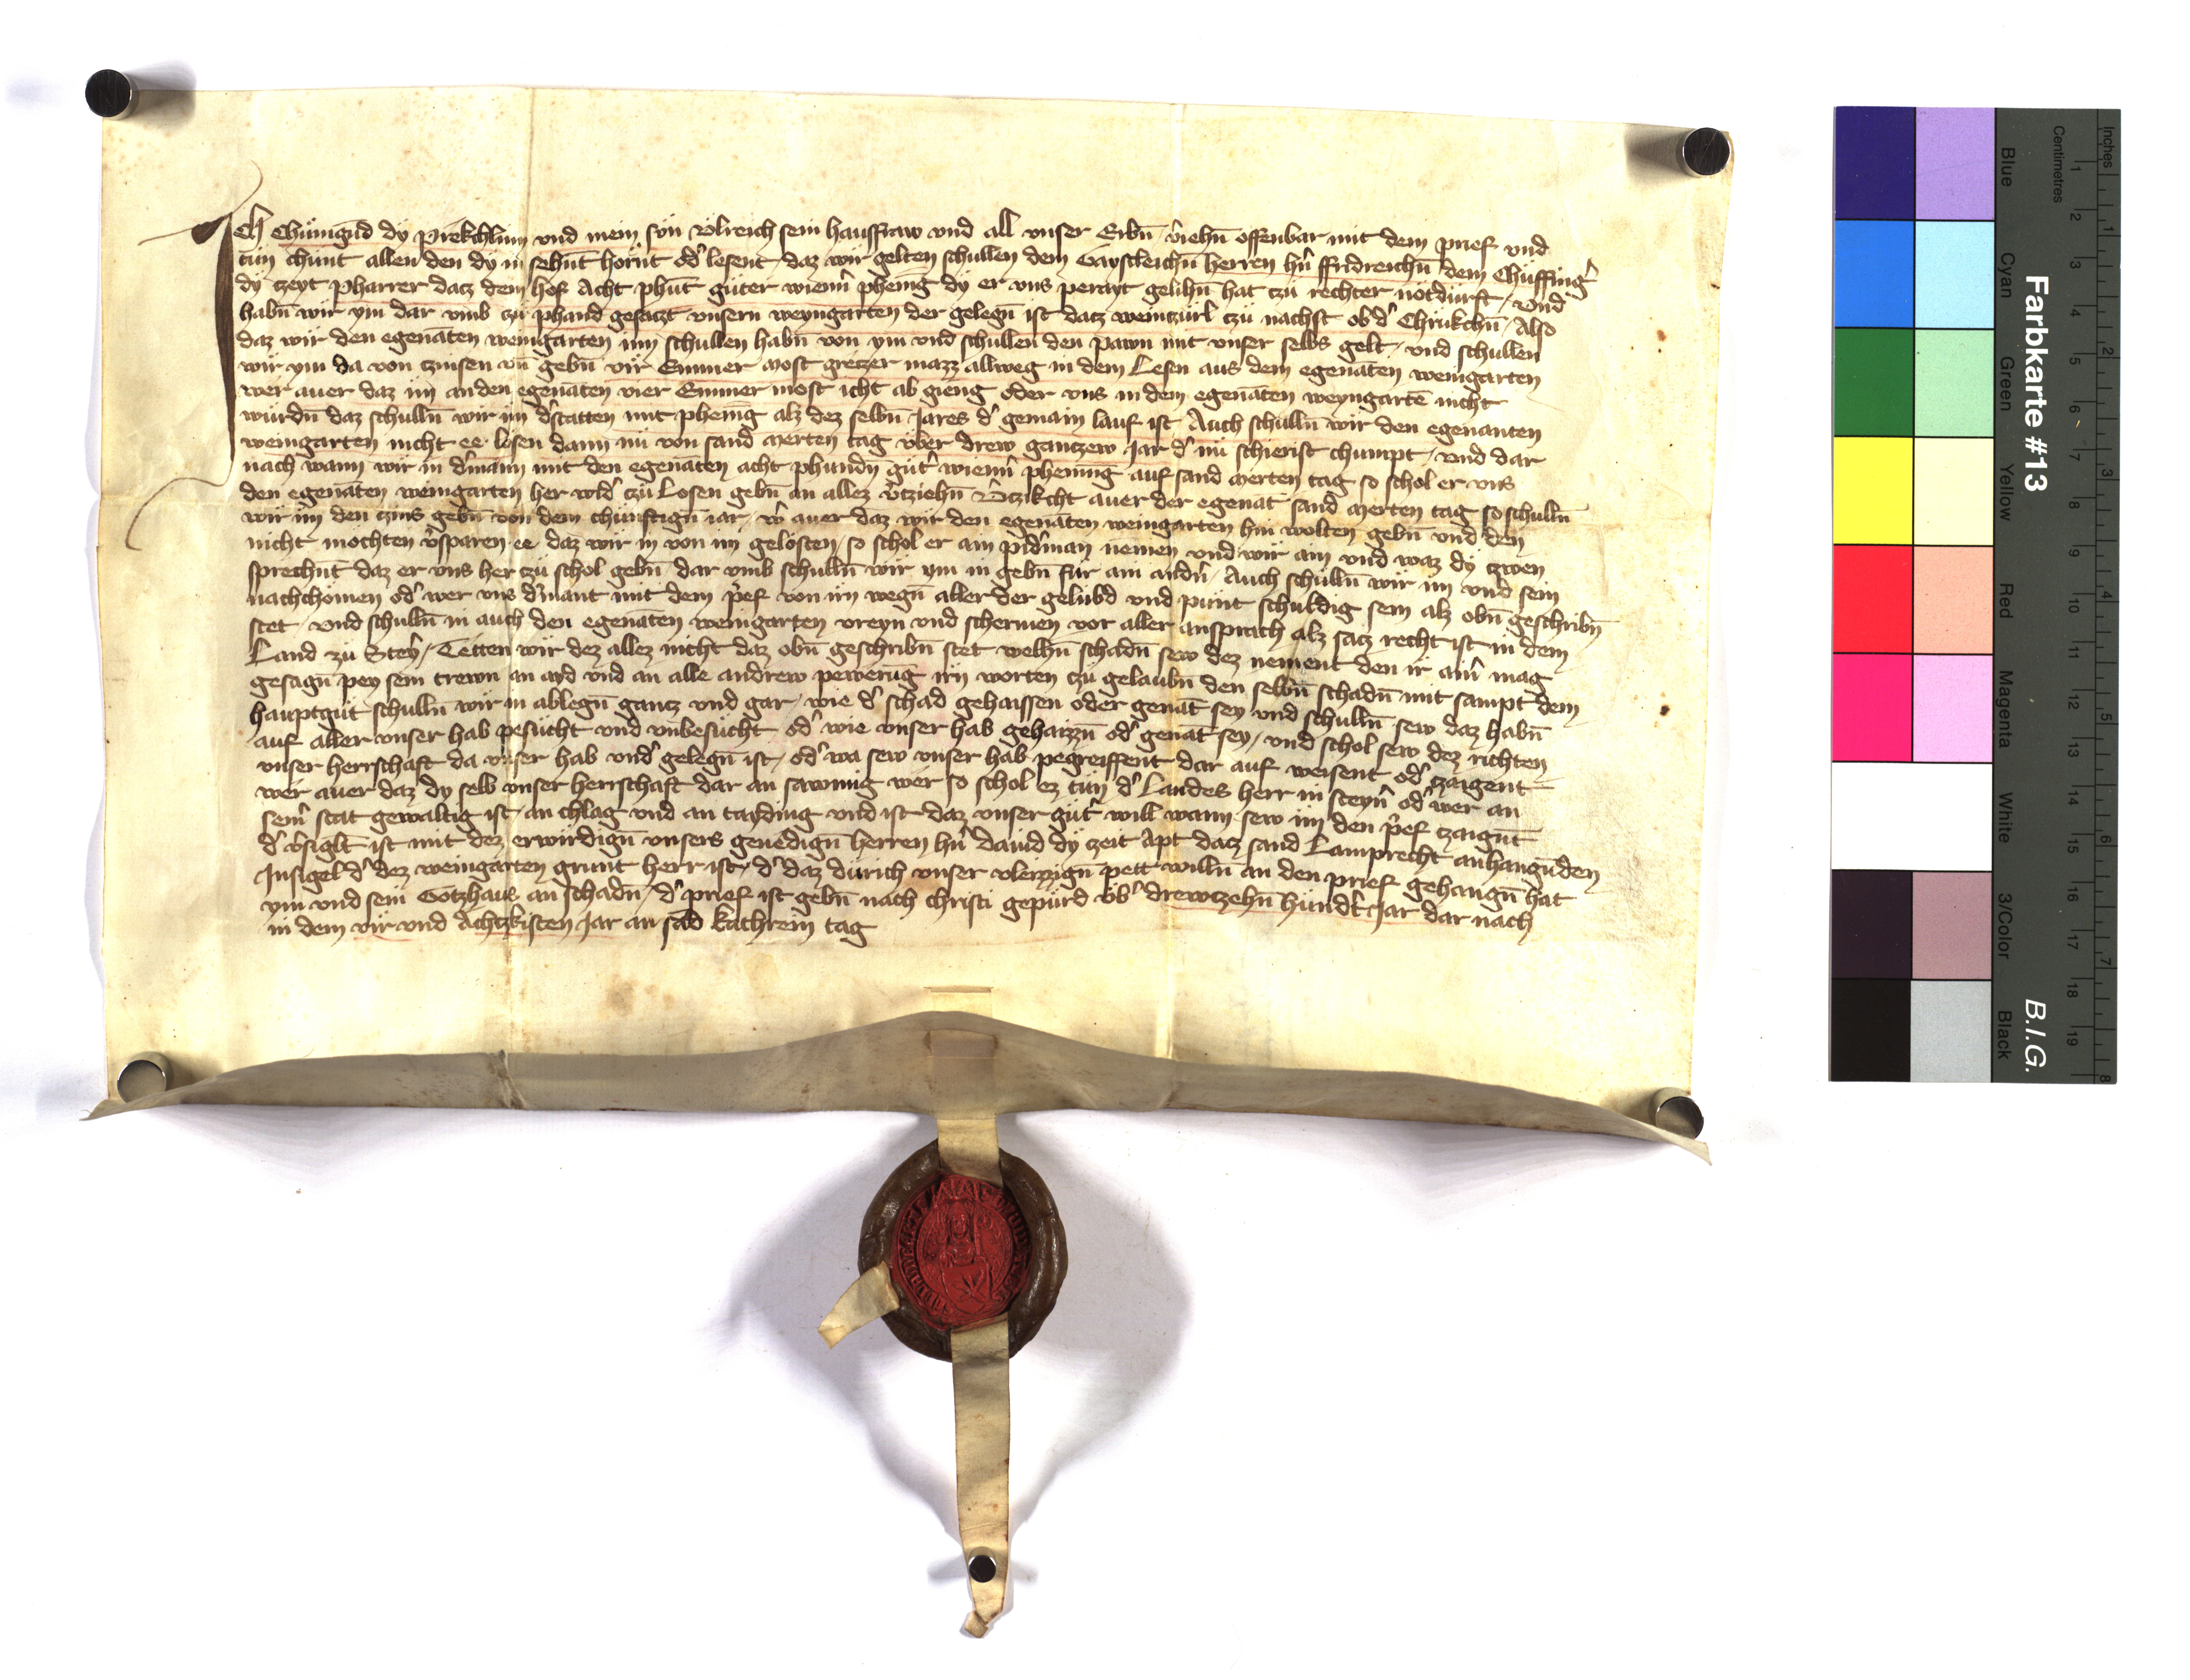 Ich Chünigūd dy Prekchlinn vnd mein sün Vlreich sein hausfraw vnd all vnser Erbn̄ v̂iehn̄ offenbar mit dem prief vnd
tün chünt allen den dy in sehn̄t hörn̄t od̂ lesent daz wir gelten schullen dem Gaystleichn̄ herren hn̂ ffridreichn̄ dem Chüffinĝ
dy czeyt Pharrer dacz dem hof Acht phūt güter wienn̂ phenīg dy er vns perayt gelihn̄ hat czü rechter nötdürft / Vnd
habn̄ wir ym dar vmb czü phand gesaczt vnsern weyngarten der gelegn̄ ist dacz weinczürl czü nachst ob d̂ Chrükchn̄ / Also
daz wir den egenāten weingarten inn schullen habn̄ von ym vnd schullen den pawn mit vnser selbs gelt / vnd schullen
wir ym da von czinsen vn̄ gebn̄ vir Emmer most greczer mazz allweg in dem Lesen aus dem egenāten weingarten
wer auer daz im an den egenāten vier Emmer most icht ab gieng oder vns in dem egenāten weyngartē nicht
würdn̄ daz schulln̄ wir im d̂statten mit phenīg alz dez selbn̄ Jares d̂ gemain lauf ist Auch schulln̄ wir den egenanten
weingarten nicht ee lösen dann nü von sand Merten tag vber drew ganczew Jar d̂ nü schierist chumpt / vnd dar
nach wann wir in d̂mann mit den egenāten acht phundn̄ güt̂ wienn̂ phening auf sand Merten tag so schol er vns
den egenāten weingarten her wid̂ czü Lösen gebn̄ an allez v̂cziehn̄ V̂czikcht auer der egenāt sand Merten tag so schulln̄
wir im den czins gebn̄ von dem chünftign̄ iar / ŵ auer daz wir den egenāten weingarten hin wolten gebn̄ vnd den
nicht mochten v̂sparen ee daz wir in von im gelösten / so schol er ain pid̂man nemen vnd wir ain vnd waz dy czwen
sprechn̄t daz er vns her czü schol gebn̄ dar vmb schulln̄ wir ym in gebn̄ für ain andn̂ / Auch schulln̄ wir im vnd sein
nachchomen od̂ wer vns d̂mant mit dem p̂ef von irn wegn̄ aller der gelübd vnd pünt schuldig sein alz obn̄ geschribn̄
stet / vnd schulln̄ in auch den egenāten weingarten vreyn vnd schermen vor aller ansprach alz sacz recht ist in dem
Land zu Steyr̂ / Tetten wir dez allez nicht daz obn̄ geschribn̄ stet welhn̄ schadn̄ sew dez nement den ir ainr̂ mag
gesagn̄ pey sein trewn an ayd vnd an alle andrew pewerūg irn worten czü gelaubn̄ den selbn̄ schadn̄ mit sampt dem
hauptgüt schulln̄ wir in ablegn̄ gancz vnd gar / wie d̂ schad gehaissen oder genāt sey vnd schulln̄ sew daz habn̄
auf aller vnser hab pesücht vnd vnbesücht od̂ wie vnser hab gehaizzn̄ od̂ genāt sey / vnd schol sew dez richten
vnser herrschaft da vnser hab vnd̂ gelegn̄ ist / od̂ wa sew vnser hab pegreiffent dar auf weisent od̂ czaigent
wer auer daz dy selb vnser herrschaft dar an sawmig wer so schol ez tün d̂ Landes herr in Steyr̂ od̂ wer an
seinr̂ stat gewaltig ist / an chlag vnd an tayding vnd ist daz vnser güt̂ will wann sew im den p̂ef czaign̄t
d̂ v̂siglt ist mit dez erwirdign̄ vnsers genedign̄ herren hn̂ Dauid dy zeit Apt dacz sand Lamprecht anhangūden
Insigel d̂ dez weingarten grunt herr ist / d̂ daz dürich vnser vleizzign̄ pett willn̄ an den prief gehangn̄ hat
ym vnd sein Gotzhaus an schadn̄ / d̂ prief ist gebn̄ nach christi gepürd vb̂ drewczehn̄ hündt̂ Jar dar nach
in dem vir vnd Achtzkisten Jar an sād Kathrein tag
Farbkarte #13
B.I.G.
Inches
Centimetres
Blue
Cyan
Green
Yellow
Red
Magenta
White
3/Color
Black
1 2 3 4 5 6 7 8
1 2 3 4 5 6 7 8 9 10 11 12 13 14 15 16 17 18 19